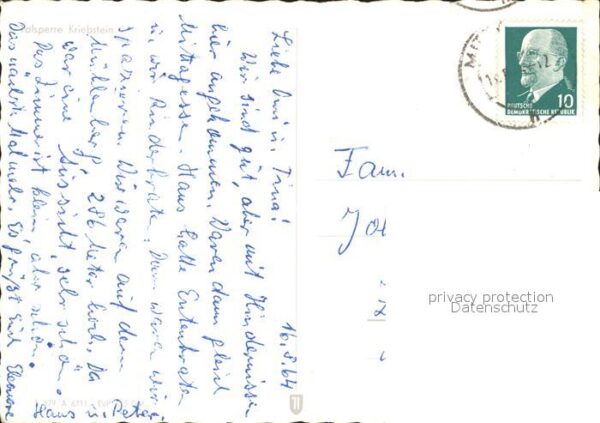 Talsperre Kriebstein
16.5.64
Liebe Omi u. Tina!
Wir sind gut, aber mit Hindernissen
hier angekommen. Waren dann gleich
Mittagessen. Haus hatte Entenbraten
u. wir Rinderbraten. Dann waren wir
spazieren. Wir waren auf dem
286 Meter hoch. Da
war eine Aussicht, sehr schön.
Das Zimmer ist klein, aber schön.
Das nächste Mal mehr. Es grüßt Euch
Hans u. Peter.
DEUTSCHE
DEMOKRATISCHE REPUBLIK
10
Fam.
privacy protection
Datenschutz